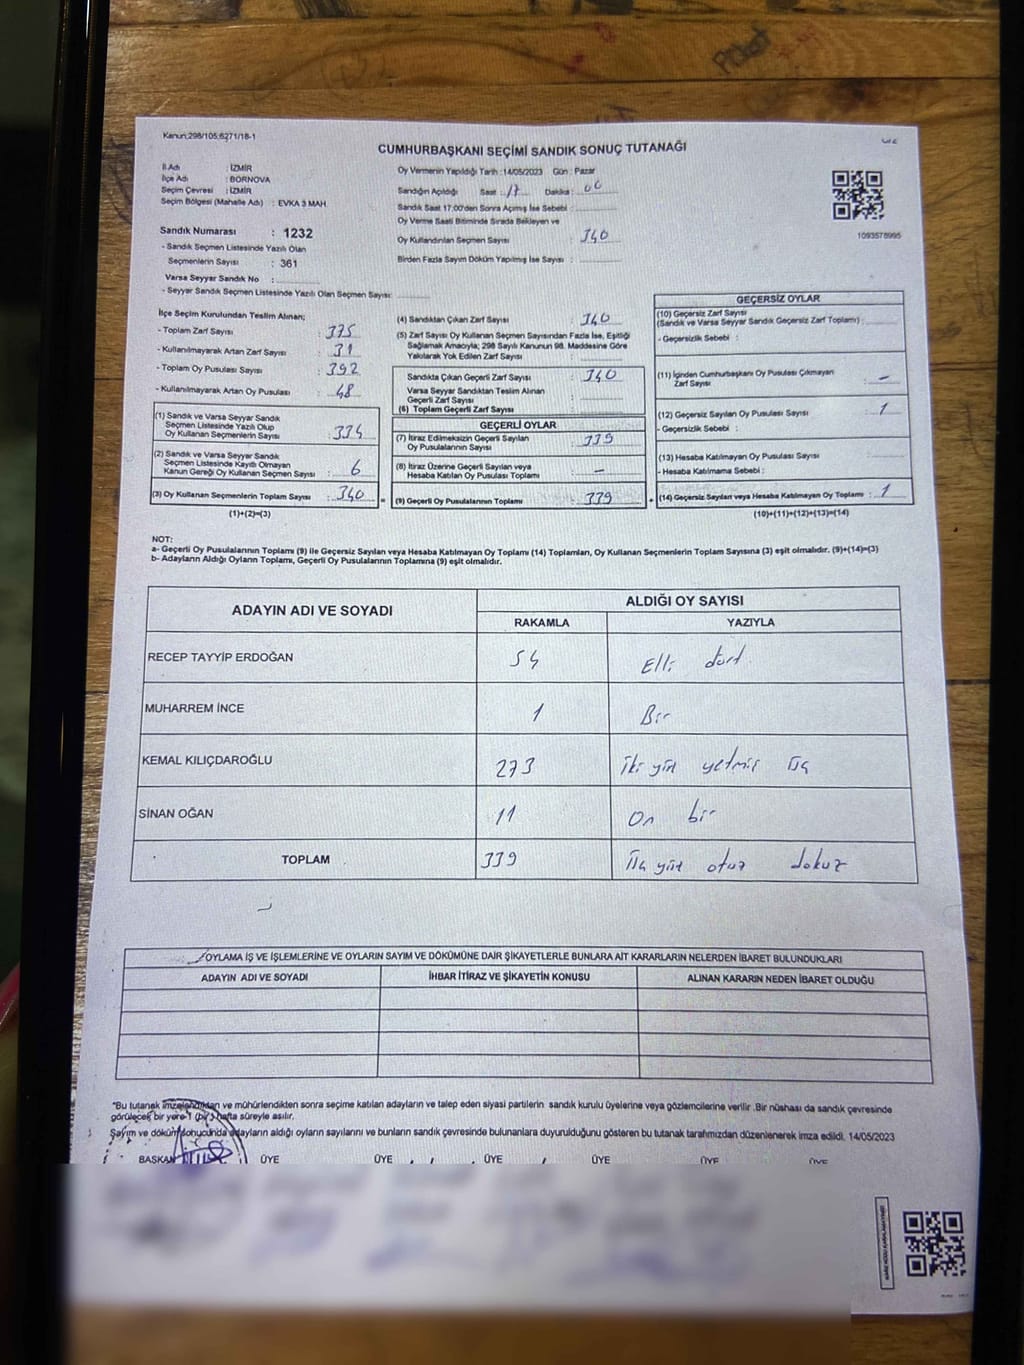 Kanun:298/105,6271/18-1
CUMHURBAŞKANI SEÇİMİ SANDIK SONUÇ TUTANAĞI
İl Adı : İZMİR
İlçe Adı : BORNOVA
Seçim Çevresi : İZMİR
Seçim Bölgesi (Mahalle Adı) : EVKA 3 MAH.
Sandık Numarası : 1232
- Sandık Seçmen Listesinde Yazılı Olan
Seçmenlerin Sayısı : 361
Varsa Seyyar Sandık No :
- Seyyar Sandık Seçmen Listesinde Yazılı Olan Seçmen Sayısı:
Oy Vermenin Yapıldığı Tarih :14/05/2023 Gün : Pazar
Sandığın Açıldığı Saat : 17 Dakika : 00
Sandık Saat 17:00'den Sonra Açılmış İse Sebebi :
Oy Verme Saati Bitiminde Sırada Bekleyen ve
Oy Kullandırılan Seçmen Sayısı : 340
Birden Fazla Sayım Döküm Yapılmış İse Sayısı :
1093578995
İlçe Seçim Kurulundan Teslim Alınan;
- Toplam Zarf Sayısı : 375
- Kullanılmayarak Artan Zarf Sayısı : 31
- Toplam Oy Pusulası Sayısı : 392
- Kullanılmayarak Artan Oy Pusulası : 48
(1) Sandık ve Varsa Seyyar Sandık
Seçmen Listesinde Yazılı Olup
Oy Kullanan Seçmenlerin Sayısı : 334
(2) Sandık ve Varsa Seyyar Sandık
Seçmen Listesinde Kayıtlı Olmayan
Kanun Gereği Oy Kullanan Seçmen Sayısı : 6
(3) Oy Kullanan Seçmenlerin Toplam Sayısı : 340
(1)+(2)=(3)
(4) Sandıktan Çıkan Zarf Sayısı : 340
(5) Zarf Sayısı Oy Kullanan Seçmen Sayısından Fazla İse, Eşitliği
Sağlamak Amacıyla; 298 Sayılı Kanunun 98. Maddesine Göre
Yakılarak Yok Edilen Zarf Sayısı :
Sandıkta Çıkan Geçerli Zarf Sayısı : 340
Varsa Seyyar Sandıktan Teslim Alınan
Geçerli Zarf Sayısı :
(6) Toplam Geçerli Zarf Sayısı :
GEÇERLİ OYLAR
(7) İtiraz Edilmeksizin Geçerli Sayılan
Oy Pusulalarının Sayısı : 339
(8) İtiraz Üzerine Geçerli Sayılan veya
Hesaba Katılan Oy Pusulası Toplamı : –
(9) Geçerli Oy Pusulalarının Toplamı : 339
GEÇERSİZ OYLAR
(10) Geçersiz Zarf Sayısı
(Sandık ve Varsa Seyyar Sandık Geçersiz Zarf Toplamı) :
- Geçersizlik Sebebi :
(11) İçinden Cumhurbaşkanı Oy Pusulası Çıkmayan
Zarf Sayısı : –
(12) Geçersiz Sayılan Oy Pusulası Sayısı : 1
- Geçersizlik Sebebi :
(13) Hesaba Katılmayan Oy Pusulası Sayısı :
- Hesaba Katılmama Sebebi :
(14) Geçersiz Sayılan veya Hesaba Katılmayan Oy Toplamı : 1
(10)+(11)+(12)+(13)=(14)
NOT:
a- Geçerli Oy Pusulalarının Toplamı (9) ile Geçersiz Sayılan veya Hesaba Katılmayan Oy Toplamı (14) Toplamları, Oy Kullanan Seçmenlerin Toplam Sayısına (3) eşit olmalıdır. (9)+(14)=(3)
b- Adayların Aldığı Oyların Toplamı, Geçerli Oy Pusulalarının Toplamına (9) eşit olmalıdır.
ADAYIN ADI VE SOYADI ALDIĞI OY SAYISI
RAKAMLA YAZIYLA
RECEP TAYYİP ERDOĞAN 54 Elli dört
MUHARREM İNCE 1 Bir
KEMAL KILIÇDAROĞLU 273 İki yüz yetmiş üç
SİNAN OĞAN 11 On bir
TOPLAM 339 Üç yüz otuz dokuz
OYLAMA İŞ VE İŞLEMLERİNE VE OYLARIN SAYIM VE DÖKÜMÜNE DAİR ŞİKAYETLERLE BUNLARA AİT KARARLARIN NELERDEN İBARET BULUNDUKLARI
ADAYIN ADI VE SOYADI İHBAR İTİRAZ VE ŞİKAYETİN KONUSU ALINAN KARARIN NEDEN İBARET OLDUĞU
"Bu tutanak imzalandıktan ve mühürlendikten sonra seçime katılan adayların ve talep eden siyasi partilerin sandık kurulu üyelerine veya gözlemcilerine verilir .Bir nüshası da sandık çevresinde
görülecek bir yere 1 (bir ) hafta süreyle asılır.
Sayım ve döküm sonucunda adayların aldığı oyların sayılarını ve bunların sandık çevresinde bulunanlara duyurulduğunu gösteren bu tutanak tarafımızdan düzenlenerek imza edildi. 14/05/2023
BAŞKAN ÜYE ÜYE ÜYE ÜYE ÜYE ÜYE